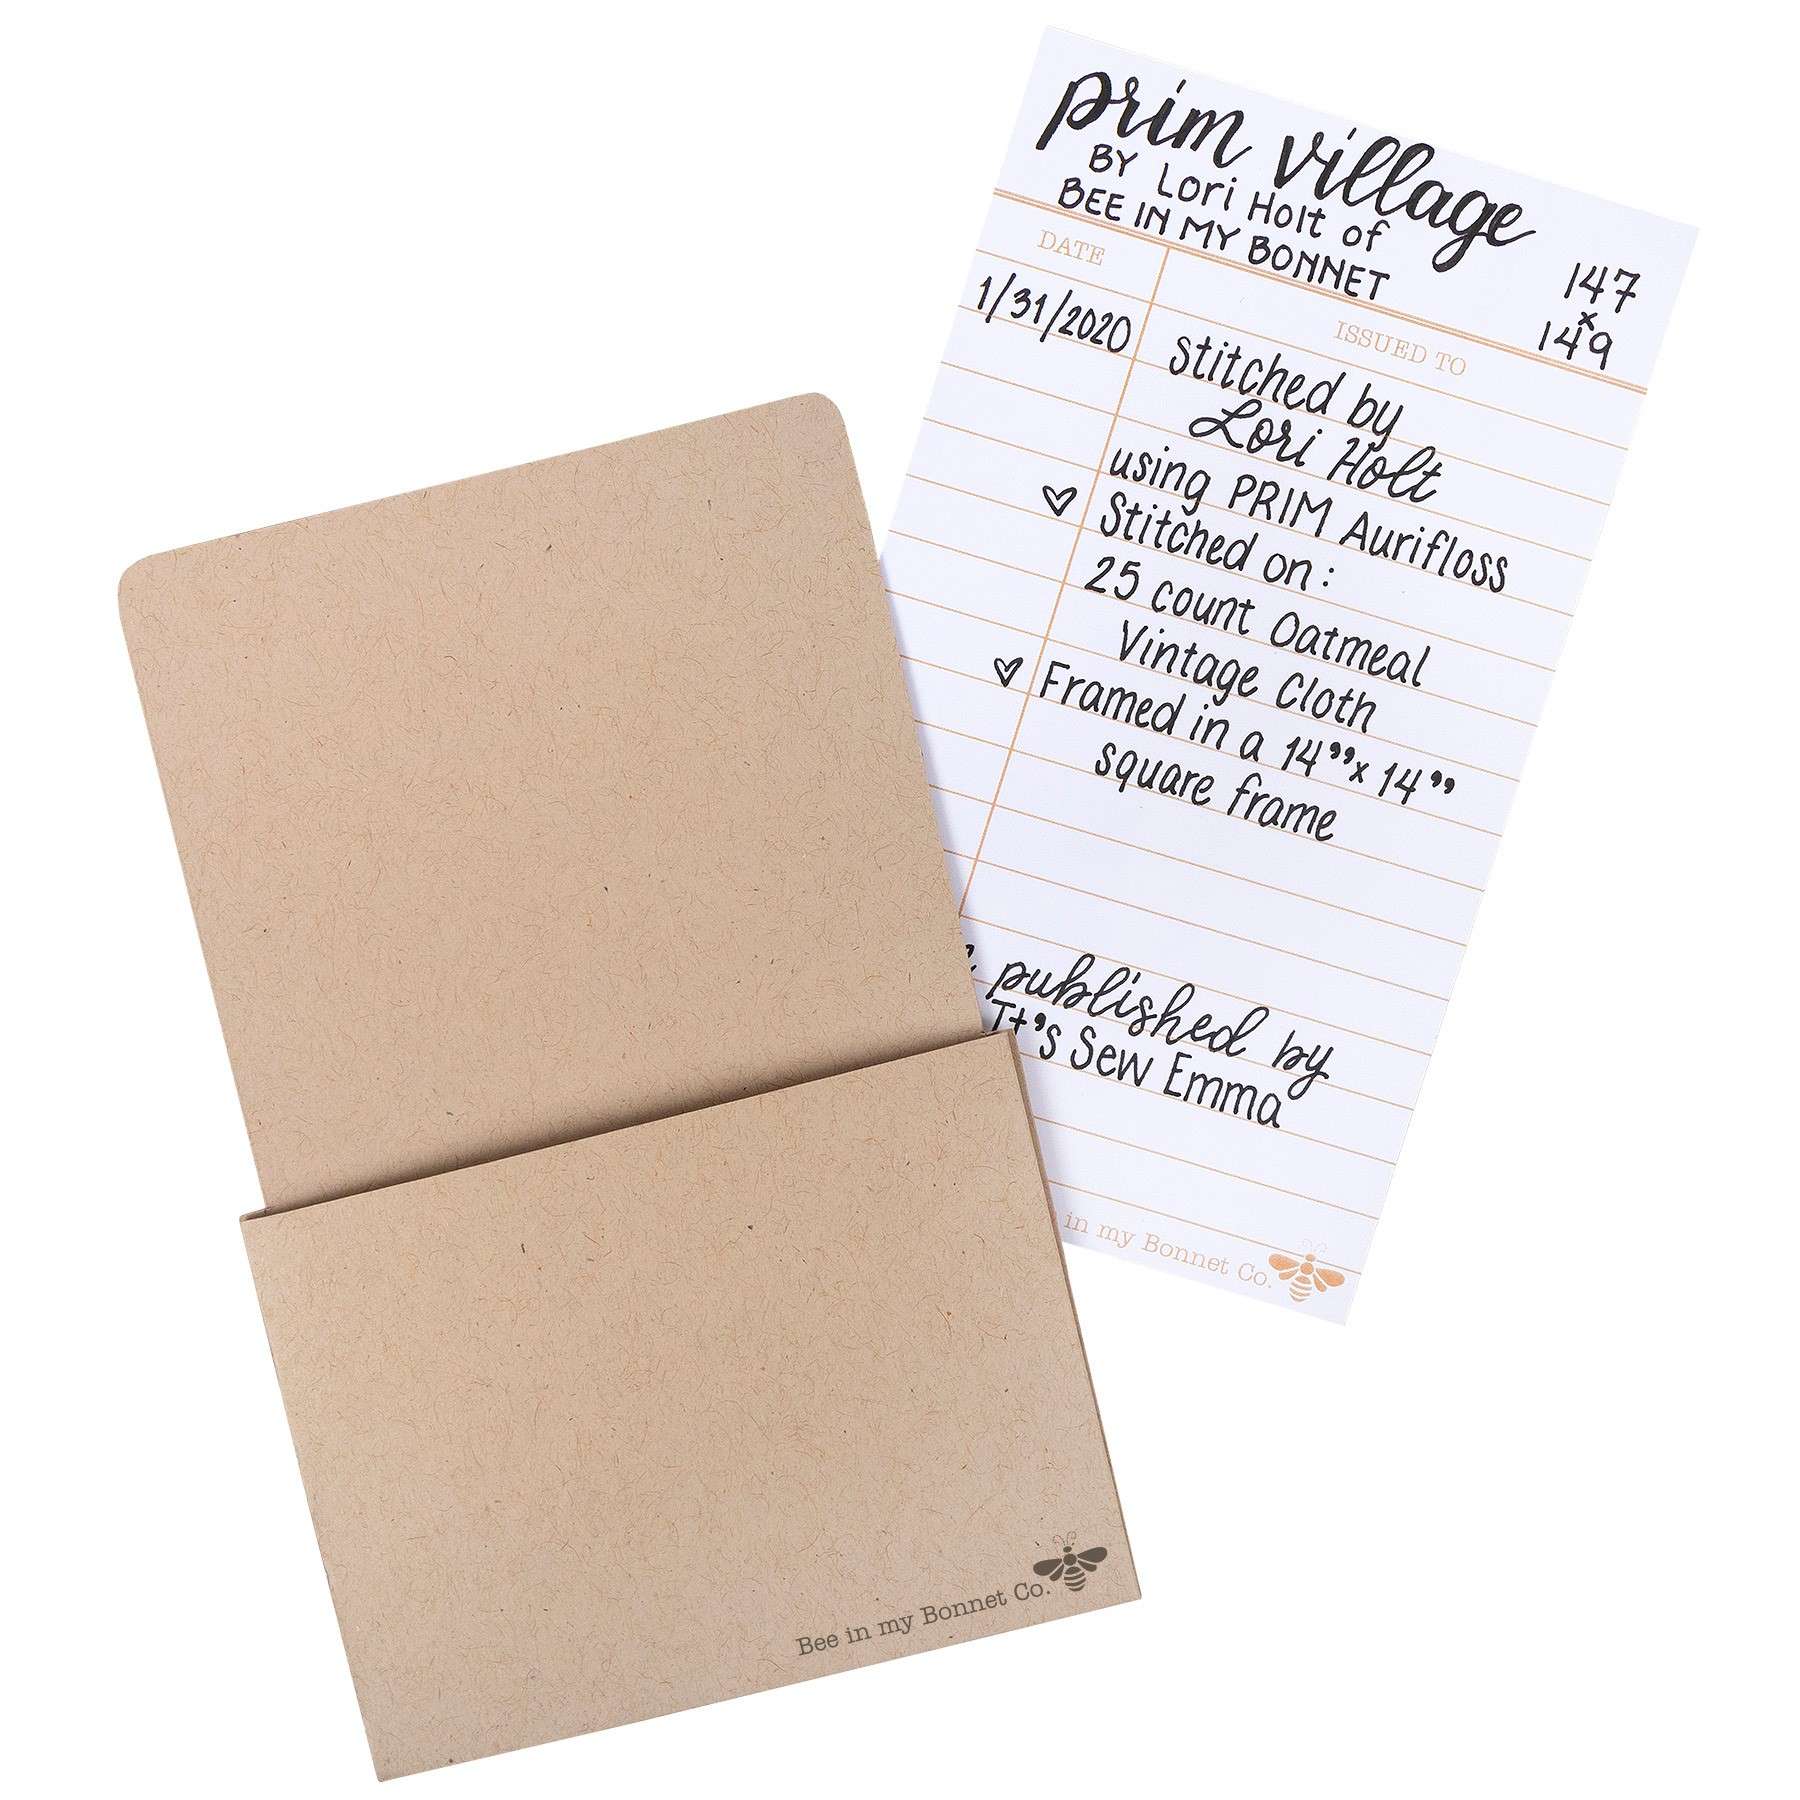 prim village
BY Lori Holt of
BEE IN MY BONNET
147
x
149
DATE
ISSUED TO
1/31/2020
stitched by
Lori Holt
using PRIM Aurifloss
♡ Stitched on:
25 count Oatmeal
Vintage Cloth
♡ Framed in a 14”x 14”
square frame
published by
It's Sew Emma
in my Bonnet Co.
Bee in my Bonnet Co.